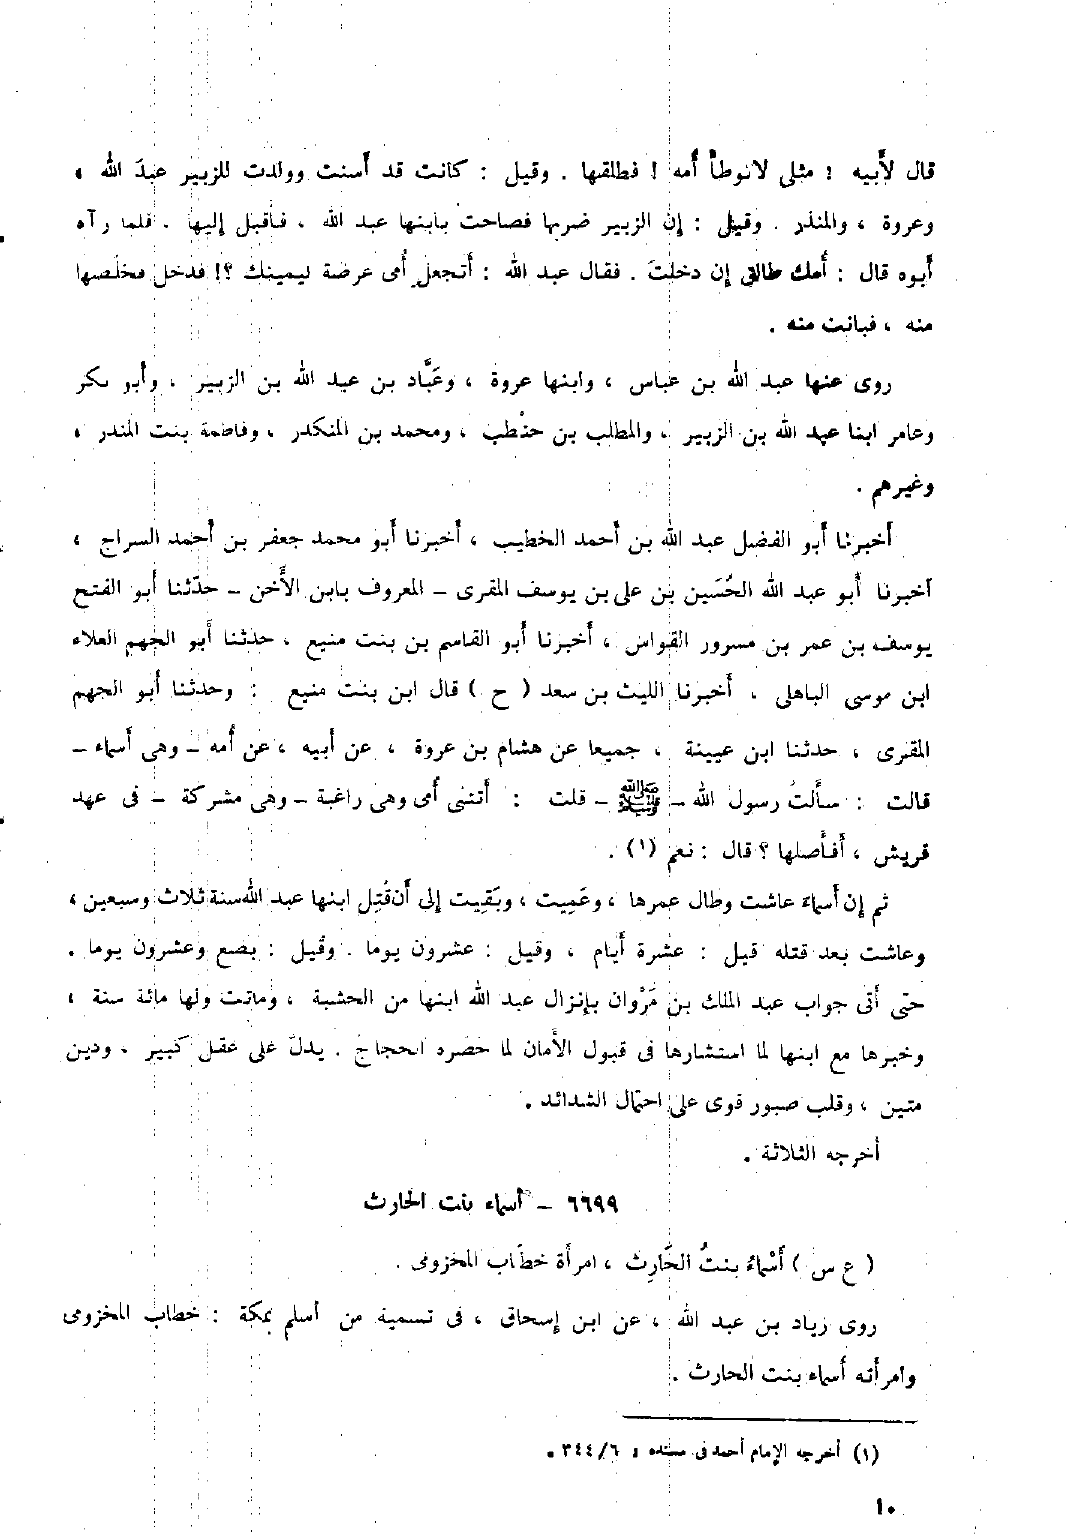 قال لأبيه : مثلى لا توطأ أمه ! فطلقها . وقيل : كانت قد أسنت وولدت للزبير عبدَ الله ،
وعروة ، والمنذر . وقيل : إن الزبير ضربها فصاحت بابنها عبد الله ، فأقبل إليها . فلما رآه
أبوه قال : أمك طالق إن دخلتَ . فقال عبد الله : أتجعل أمى عرضة ليمينك ؟! فدخل فخلصها
منه ، فبانت منه .
روى عنها عبد الله بن عباس ، وابنها عروة ، وعَبَّاد بن عبد الله بن الزبير ، وأبو بكر
وعامر ابنا عبد الله بن الزبير ، والمطلب بن حنْطب ، ومحمد بن المنكدر ، وفاطمة بنت المنذر ،
وغيرهم .
أخبرنا أبو الفضل عبد الله بن أحمد الخطيب ، أخبرنا أبو محمد جعفر بن أحمد السراج ،
أخبرنا أبو عبد الله الحُسَين بن على بن يوسف المقرى – المعروف بابن الأخن – حدّثنا أبو الفتح
يوسف بن عمر بن مسرور القواس ، أخبرنا أبو القاسم بن بنت منيع ، حدثنا أبو الجهم العلاء
ابن موسى الباهلى ، أخبرنا الليث بن سعد ( ح ) قال ابن بنت منيع : وحدثنا أبو الجهم
المقرى ، حدثنا ابن عيينة ، جميعا عن هشام بن عروة ، عن أبيه ، عن أمه – وهى أسماء –
قالت : سألتُ رسول الله – ﷺ – قلت : أتتنى أمى وهى راغبة – وهى مشركة – فى عهد
قريش ، أفأصلها ؟ قال : نعم (١) .
ثم إن أسماء عاشت وطال عمرها ، وعَمِيت ، وبَقِيت إلى أن قُتِل ابنها عبد الله سنة ثلاث وسبعين ،
وعاشت بعد قتله قيل : عشرة أيام ، وقيل : عشرون يوما . وقُيل : بضع وعشرون يوما .
حتى أتى جواب عبد الملك بن مَرْوان بإنزال عبد الله ابنها من الخشبة ، وماتت ولها مائة سنة ،
وخبرها مع ابنها لما استشارها فى قبول الأمان لما حصره الحجاج . يدلّ على عقل كبير ، ودين
متين ، وقلب صبور قوى على احتمال الشدائد .
أخرجه الثلاثة .
٦٦٩٩ – أسماء بنت الحارث
( ع س ) أَسْماءُ بنتُ الحَارِث ، امرأة خطّاب المخزومى .
روى زياد بن عبد الله ، عن ابن إسحاق ، فى تسمية من أسلم بمكة : خطاب المخزومى
وامرأته أسماء بنت الحارث .
(١) أخرجه الإمام أحمد فى مسنده : ٣٤٤/٦ .
١٠